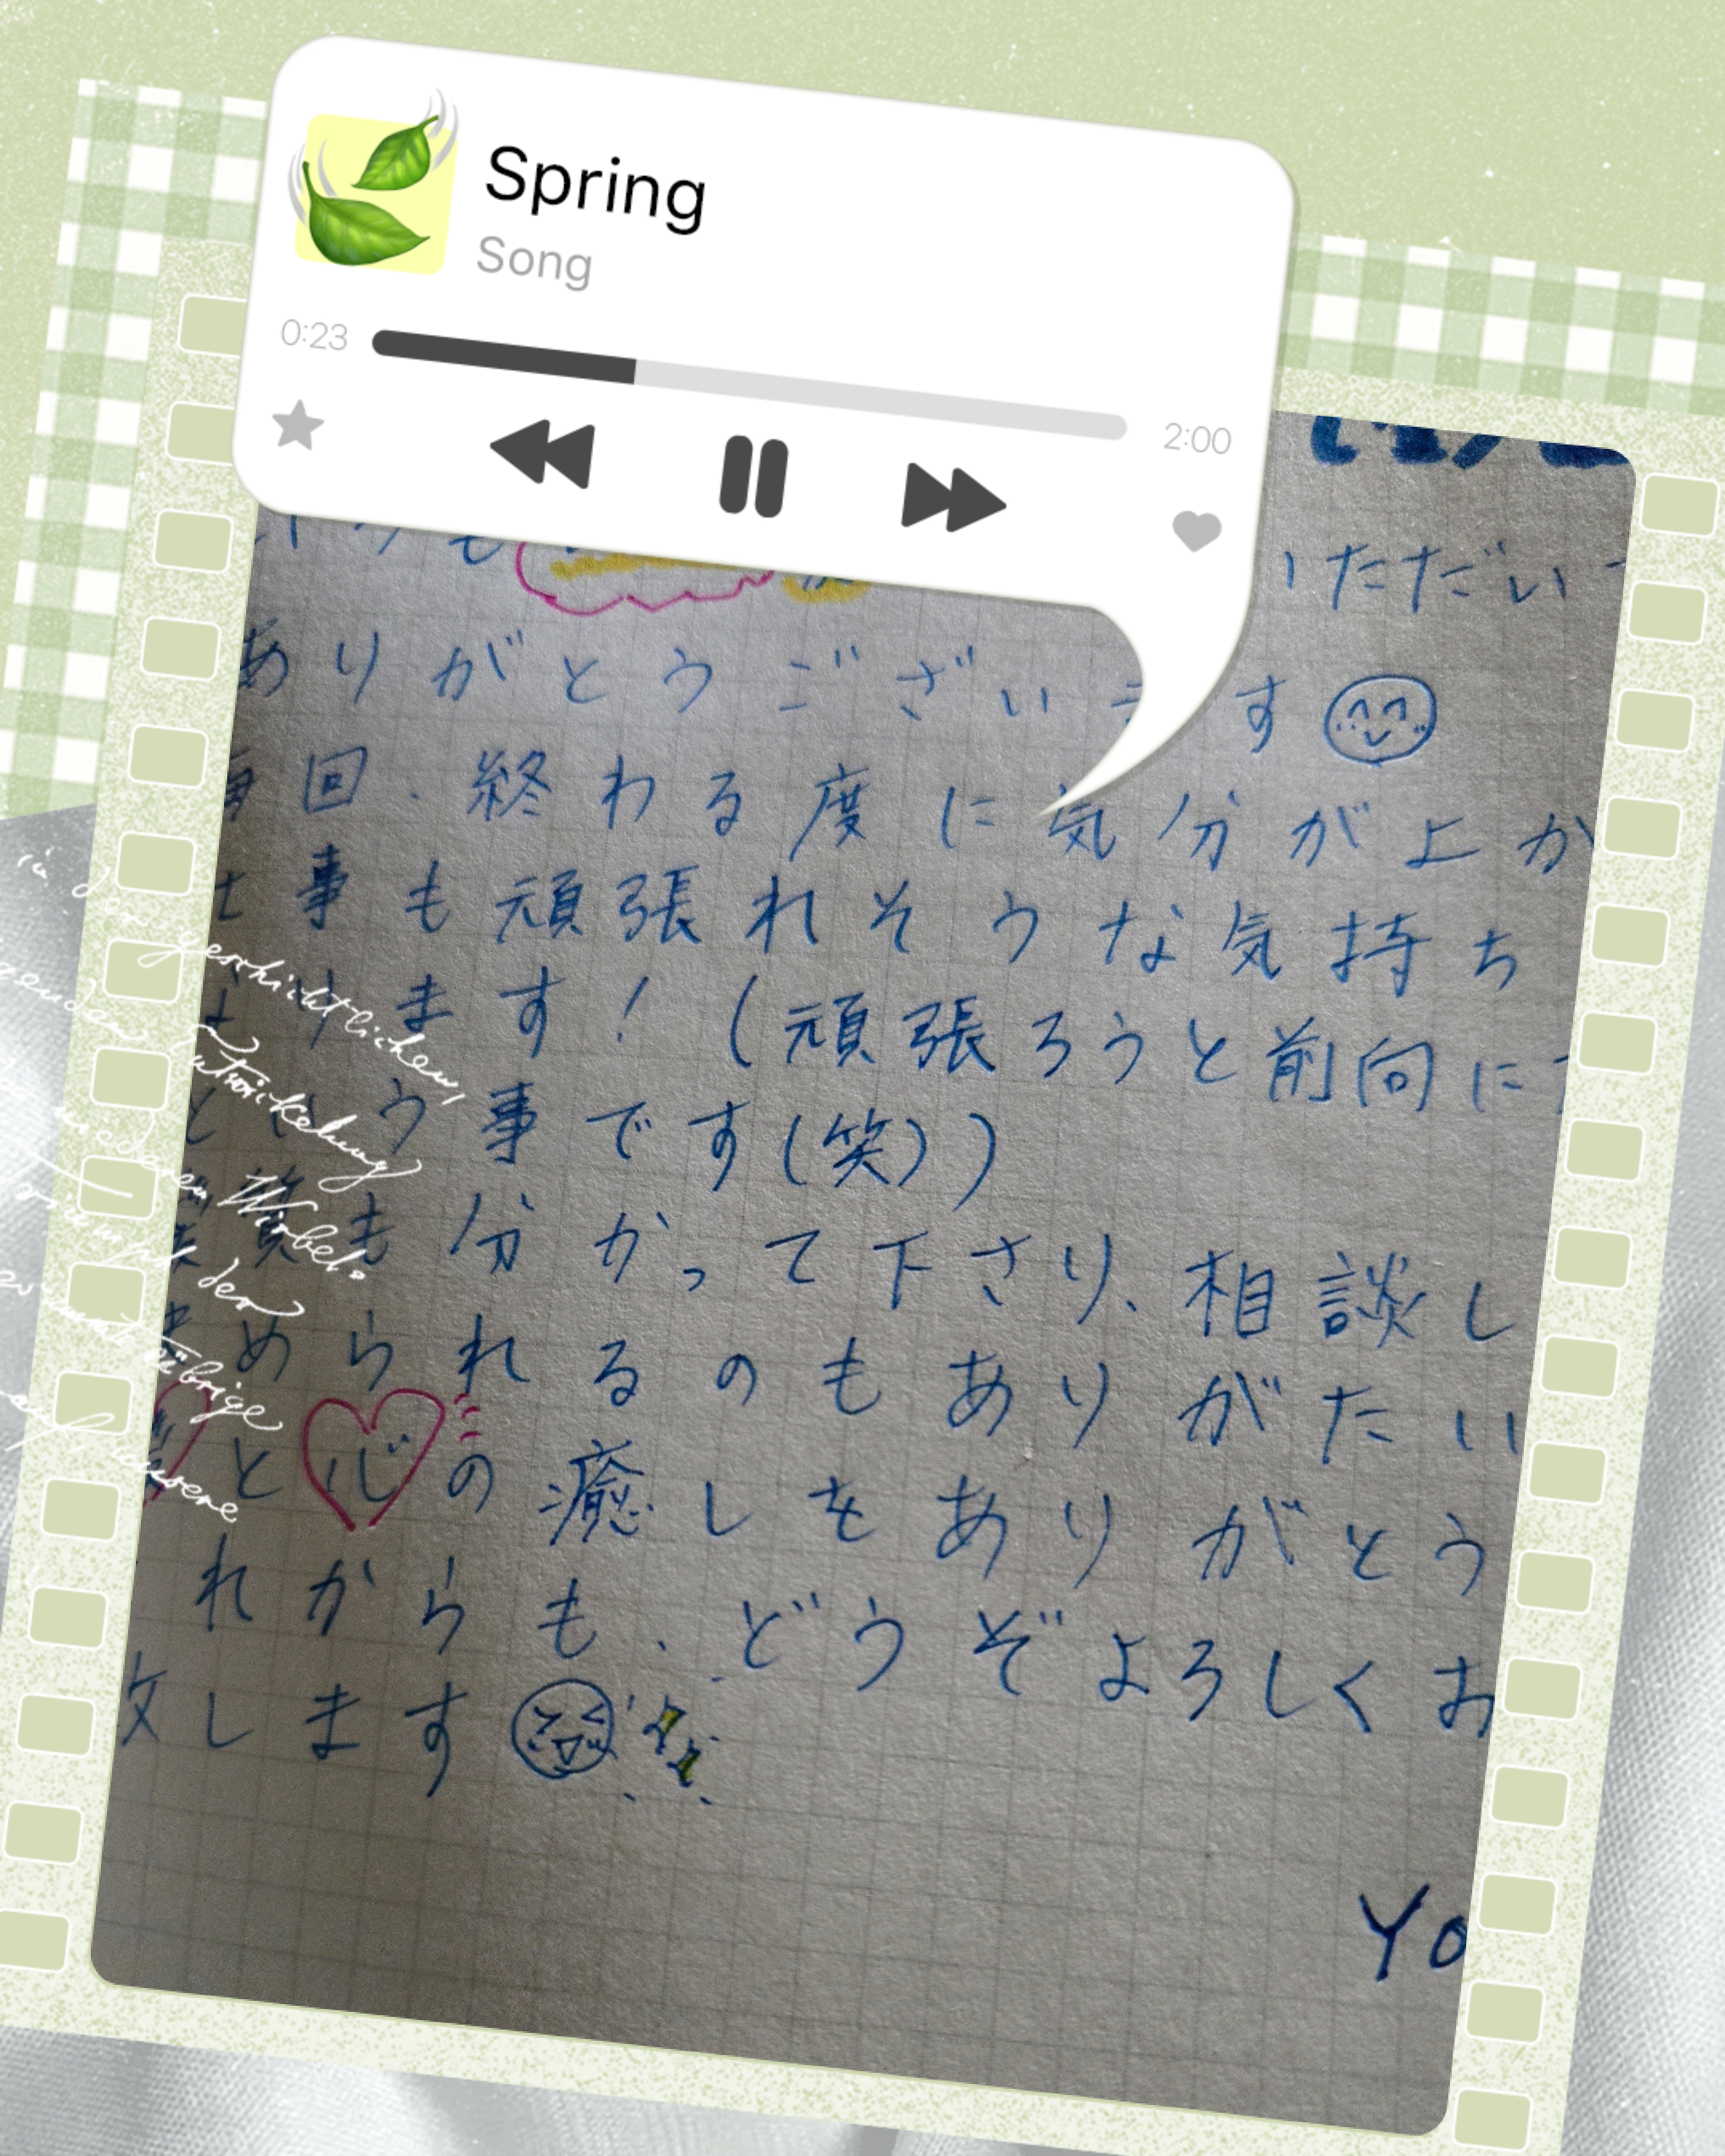 Spring
Song
0:23
2:00
いただい
ありがとうございます
毎回、終わる度に気分が上が
仕事も頑張れそうな気持ち
ます！（頑張ろうと前向に
という事です（笑））
も分かって下さり、相談し
められるのもありがたい
と心の癒しをありがとう
れからも、どうぞよろしくお
致します
Yo
geschichtlichen,
Entwickelung
Wirbel.
der
übrige
unsere